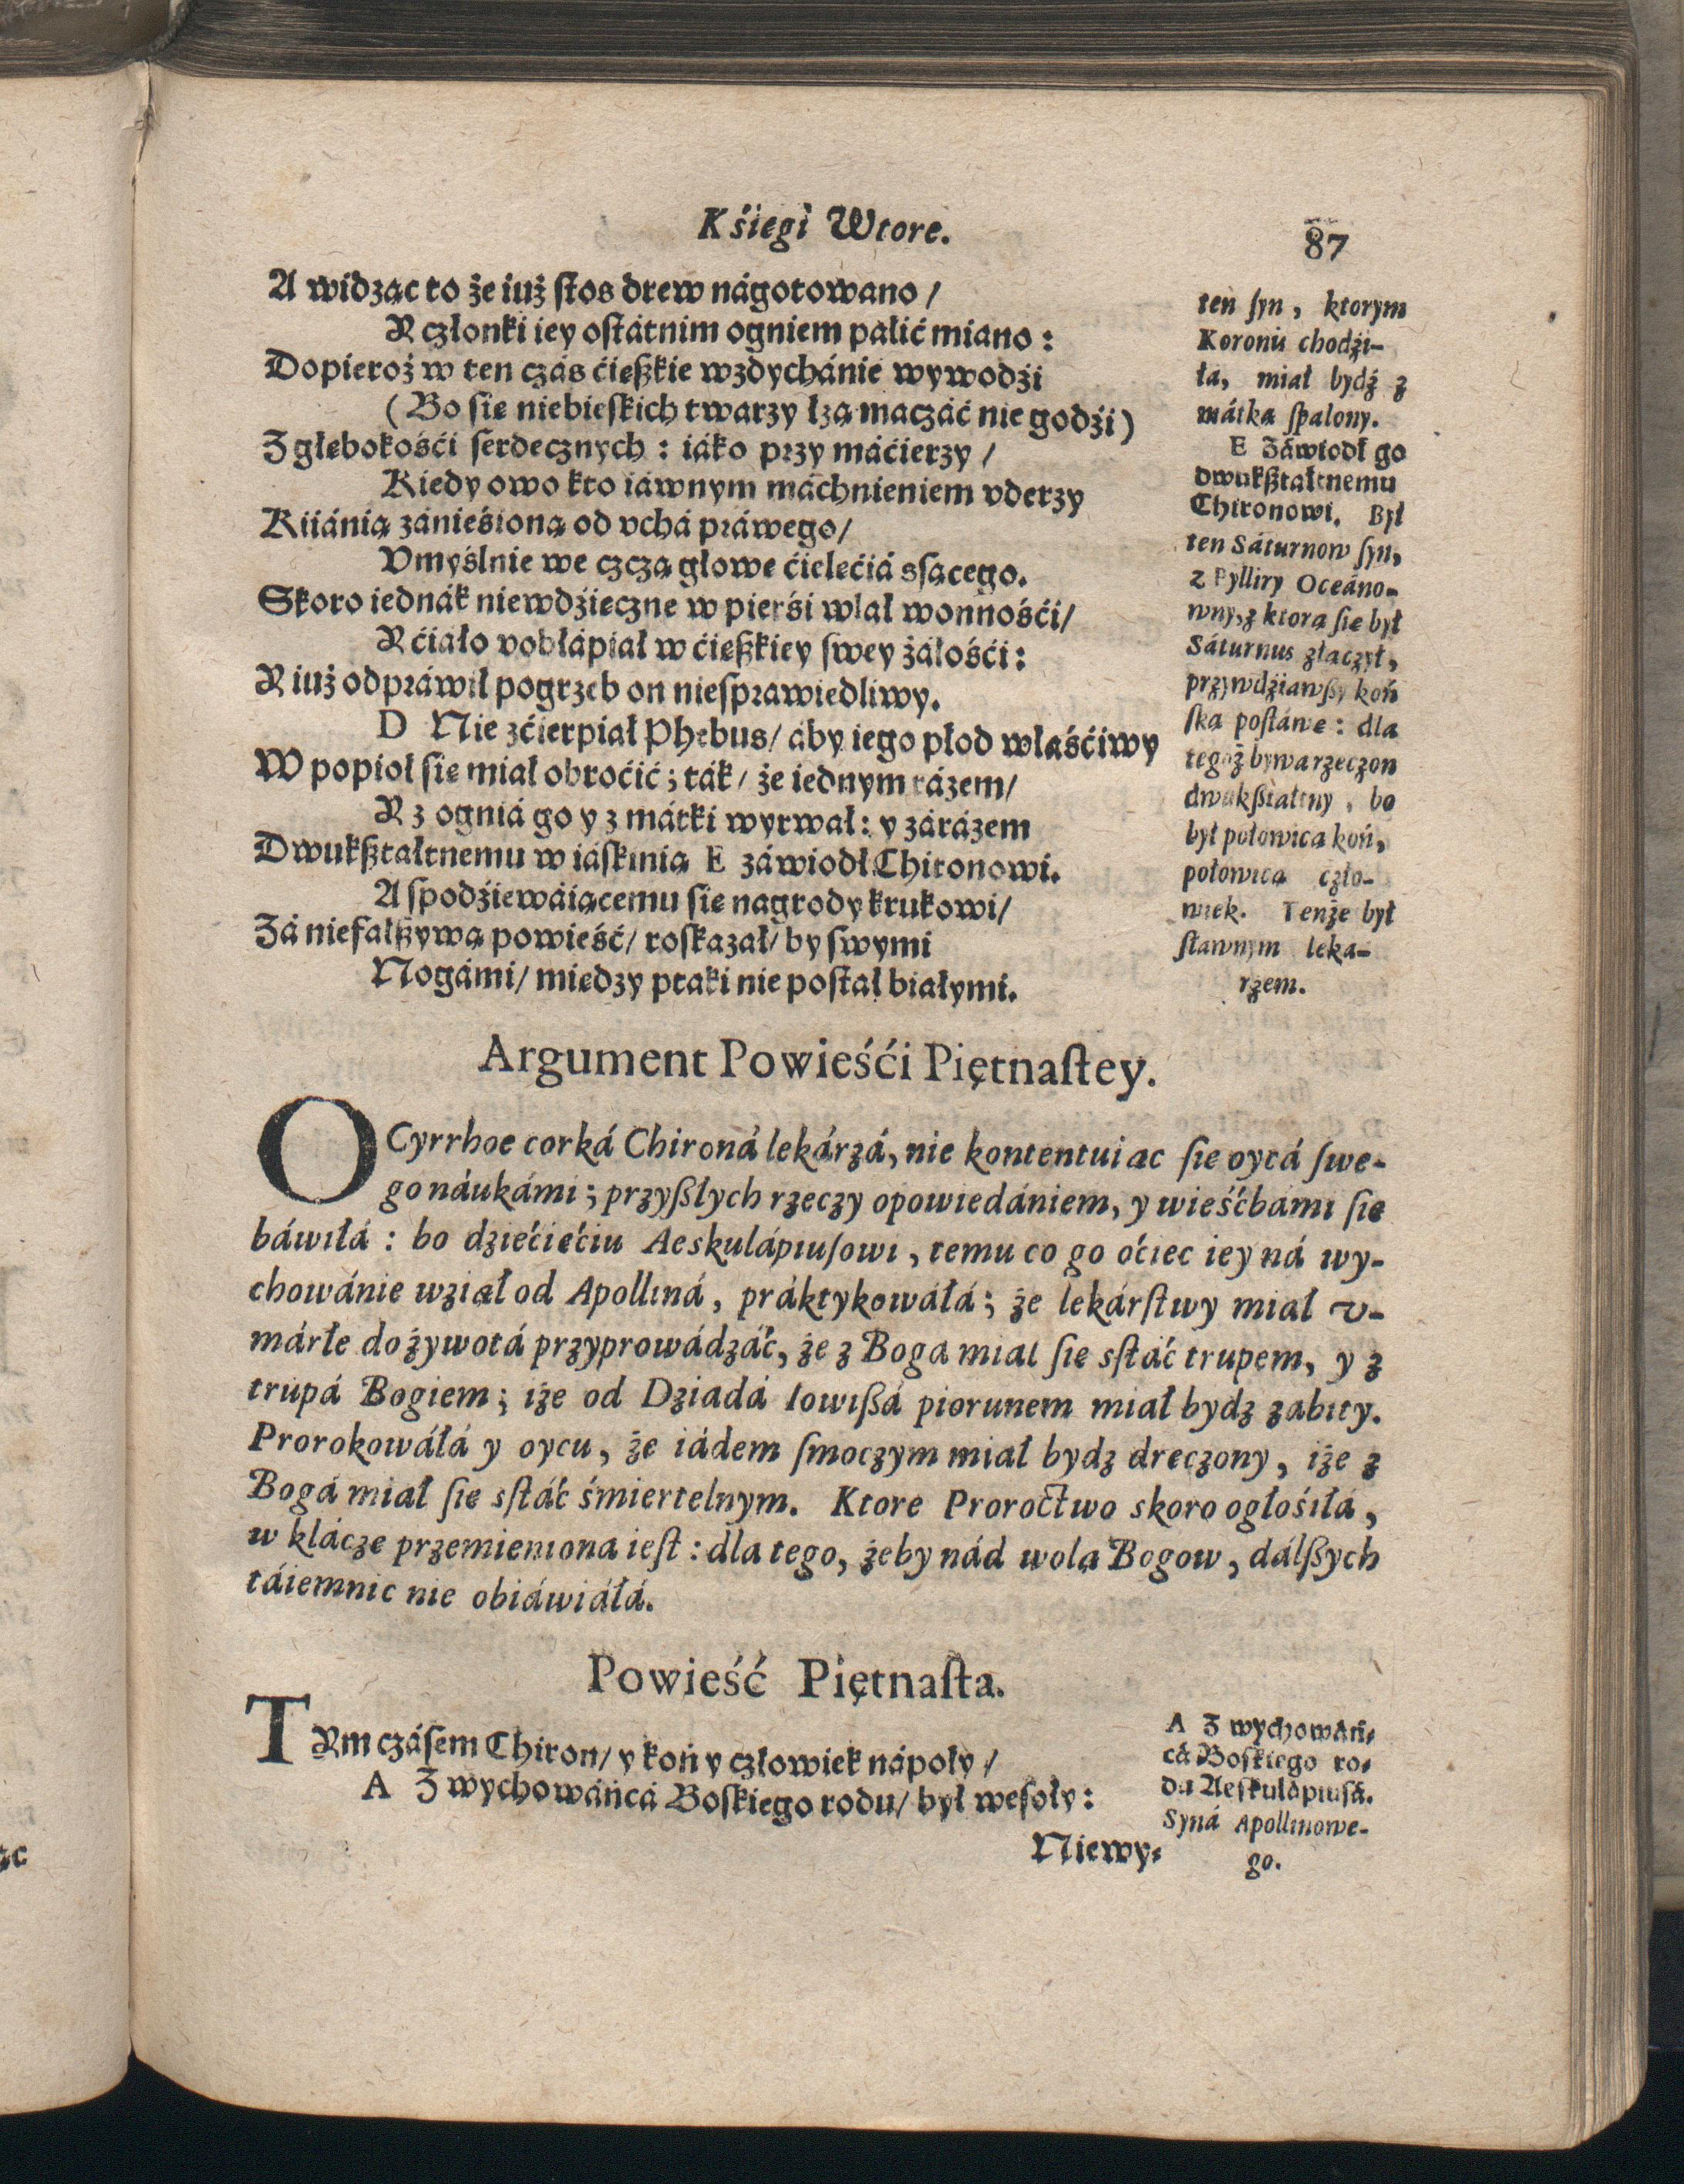 Kśięgi Wtore.
87
A widząc to że iuż ſtos drew nágotowano /
Y członki iey oſtátnim ogniem palić miano :
Dopieroż w ten czás ćięſzkie wzdychánie wywodźi
(Bo ſie niebieſkich twarzy łzą maczáć nie godźi)
Z głębokośći ſerdecznych : iáko przy máćierzy /
Kiedy owo kto iáwnym máchnieniem vderzy
Kiiánią zánieśioną od vchá práwego/
Vmyślnie we czczą głowę ćielęćiá sſącego.
Skoro iednák niewdźięczne w pierśi wlał wonnośći/
Y ćiáło vobłápiał w ćięſzkiey ſwey żáłośći :
Y iuż odpráwił pogrzeb on nieſprawiedliwy.
D Nie zćierpiał Phebus/ áby iego płod właśćiwy
W popioł ſię miał obroćić ; ták / że iednym rázem/
Y z ogniá go y z mátki wyrwał : y zárázem
Dwukſztałtnemu w iáſkinią E záwiodł Chironowi.
A ſpodźiewáiącemu ſię nagrody krukowi/
Zá niefałſzywą powieść/ roſkazał/ by ſwymi
Nogámi/ między ptaki nie poſtał białymi.
ten ſyn , ktorym
Koronis chodźi-
łá, miał bydź z
mátką ſpalony.
E Záwiodł go
dwukſztałtnemu
Chironowi. Był
ten Sáturnow ſyn,
z Fylliry Oceáno-
wny, z ktorą ſię był
Sáturnus złączył,
przywdźiawſzy koń
ſką poſtáwę : dla
tegoż bywa rzeczon
dwukſztałtny , bo
był połowicą koń,
połowicą czło-
wiek. Tenże był
ſławnym leka-
rzem.
Argument Powieśći Piętnaſtey.
OCyrrhoe corká Chironá lekárzá, nie kontentuiąc ſię oycá ſwe-
go náukámi ; przyſzłych rzeczy opowiedániem, y wieśćbámi ſię
báwiłá : bo dziećięćiu Aeskulápiuſowi , temu co go oćiec iey ná wy-
chowánie wziął od Apolliná , práktykowáłá ; że lekárſtwy miał v-
márłe do żywotá przyprowádzáć, że z Bogá miał ſię sſtáć trupem, y z
trupá Bogiem ; iże od Dziadá Iowiſzá piorunem miał bydz zabity.
Prorokowáłá y oycu, że iádem ſmoczym miał bydz dręczony, iże z
Bogá miał ſię sſtáć śmiertelnym. Ktore Proroctwo skoro ogłośiłá ,
w klácżę przemieniona ieſt : dla tego, żeby nád wolą Bogow, dálſzych
táiemnic nie obiáwiáłá.
Powieść Piętnaſta.
TYm czáſem Chiron/ y koń y człowiek nápoły /
A Z wychowáńcá Boſkiego rodu/ był weſoły :
Niewy-
A Z wychowáń-
cá Boſkiego ro-
du Aeſkulápiuſá.
Syná Apollinowe-
go.